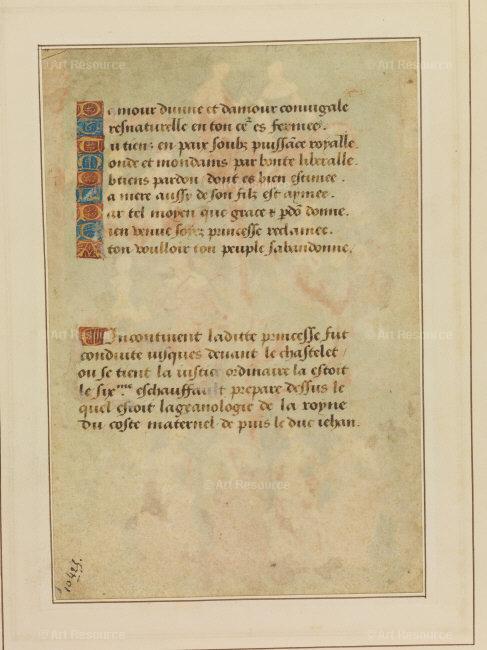 Damour divine et damour coniugale
Tresnaturelle en ton ce' es fermee.
Tu tiens en paix soubz puissāce royalle
Monde et mondains par bonte liberalle.
Obtiens pardon dont es bien estimee.
La mere aussy de son filz est aymee.
Par tel moyen que grace & pdō donne.
Bien venue soyez princesse reclamee.
A ton voulloir ton peuple sabandonne.
Incontinent laditte princesse fut
conduite iusques deuant le chastelet /
ou se tient la iustice ordinaire la estoit
le six.me eschauffault prepare dessus le
quel estoit lageanologie de la royne
du coste maternel de puis le duc iehan.
10425.
© Art Resource